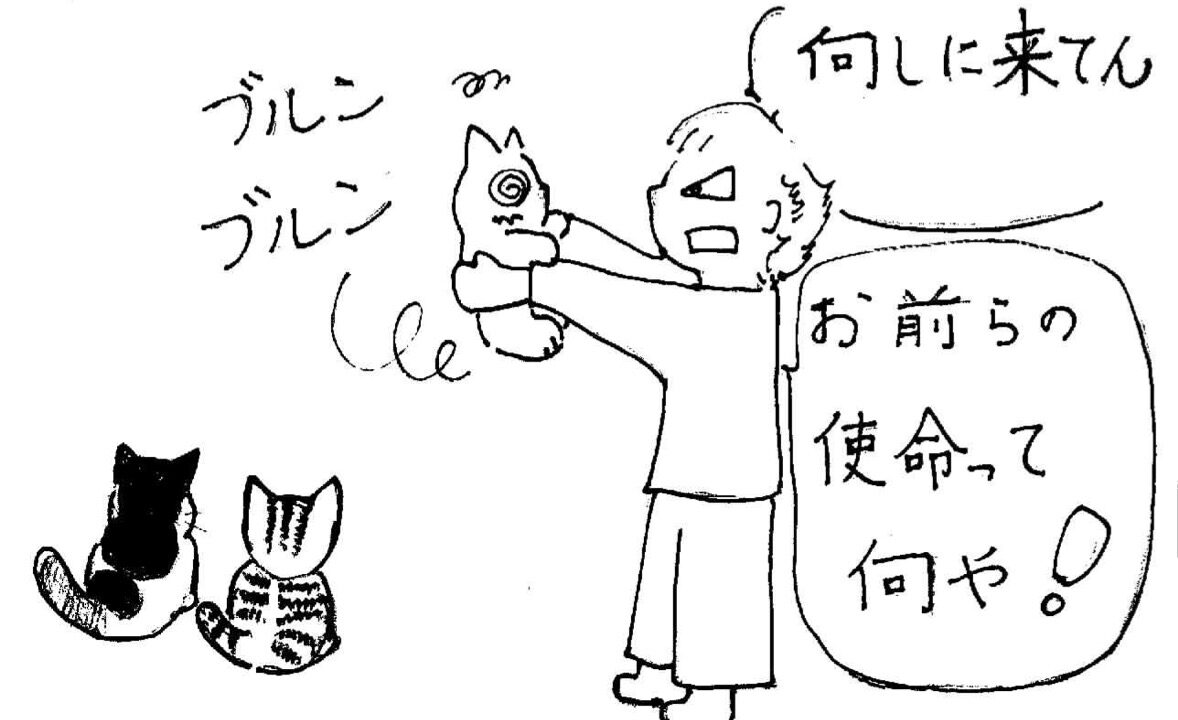 何しに来てん
お前らの
使命って
何や!
ブルン
ブルン